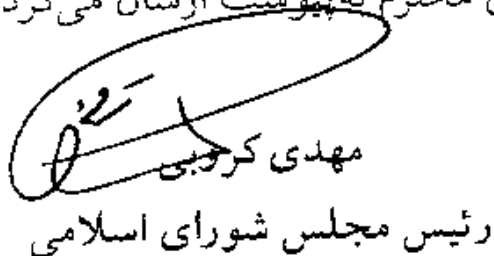 محترم به پیوست ارسال می‌گردد
مهدی کروبی
رئیس مجلس شورای اسلامی